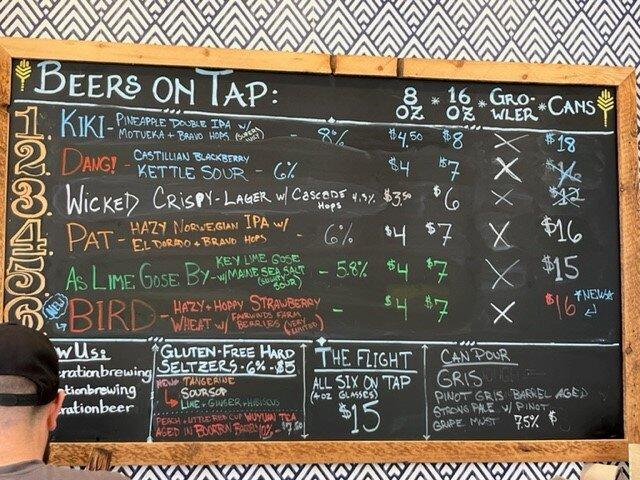 BEERS ON TAP: 8 OZ * 16 OZ * GRO-WLER * CANS
1. KIKI - PINEAPPLE DOUBLE IPA W/
MOTUEKA + BRAVO HOPS - 8% $4.50 $8 X $18
2. DANG! - CASTILLIAN BLACKBERRY
KETTLE SOUR - 6% $4 $7 X $16
3. WICKED CRISPY - LAGER W/ CASCADE
HOPS 4.3% $3.50 $6 X $12
4. PAT - HAZY NORWEGIAN IPA W/
EL DORADO + BRAVO HOPS - 6% $4 $7 X $16
5. AS LIME GOSE BY - KEY LIME GOSE
W/ MAINE SEA SALT - 5.8% $4 $7 X $15
6. NEW BIRD - HAZY + HOPPY STRAWBERRY
WHEAT W/ FAIRWINDS FARM
BERRIES (VERY LIMITED) - $4 $7 X $16 *NEW*
W US:
erationbrewing
ationbrewing
rationbeer
GLUTEN-FREE HARD
SELTZERS - 6% - $5
NEW! TANGERINE
SOURSOP
LIME + GINGER + HIBISCUS
PEACH + LITTLE RED CUP WUYUAN TEA
AGED IN BOURBON BARRELS 10% - $7.50
THE FLIGHT
ALL SIX ON TAP
(4 OZ GLASSES)
$15
CAN POUR
GRIS
PINOT GRIS BARREL AGED
STRONG PALE W/ PINOT
GRIPE MUST 7.5% $